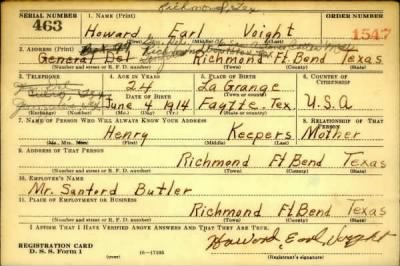 Richmond, Tex
SERIAL NUMBER
1. NAME (Print)
ORDER NUMBER
463
Howard Earl Voight
1547
(First) (Middle) (Last)
2. ADDRESS (Print)
General Del Richmond Ft. Bend Texas
(Number and street or R. F. D. number) (Town) (County) (State)
3. TELEPHONE
4. AGE IN YEARS
5. PLACE OF BIRTH
6. COUNTRY OF CITIZENSHIP
24
La Grange
DATE OF BIRTH
(Town or county)
June 4 1914
Faytte. Tex.
U.S.A
(Exchange) (Number) (Mo.) (Day) (Yr.) (State or country)
7. NAME OF PERSON WHO WILL ALWAYS KNOW YOUR ADDRESS
8. RELATIONSHIP OF THAT PERSON
Henry Keepers Mother
(Mr., Mrs., Miss) (First) (Middle) (Last)
9. ADDRESS OF THAT PERSON
Richmond Ft Bend Texas
(Number and street or R. F. D. number) (Town) (County) (State)
10. EMPLOYER'S NAME
Mr. Sanford Butler
11. PLACE OF EMPLOYMENT OR BUSINESS
Richmond Ft. Bend Texas
(Number and street or R. F. D. number) (Town) (County) (State)
I AFFIRM THAT I HAVE VERIFIED ABOVE ANSWERS AND THAT THEY ARE TRUE.
REGISTRATION CARD
D. S. S. Form 1
(over)
16-17105
Howard Earl Voight
(Registrant's signature)